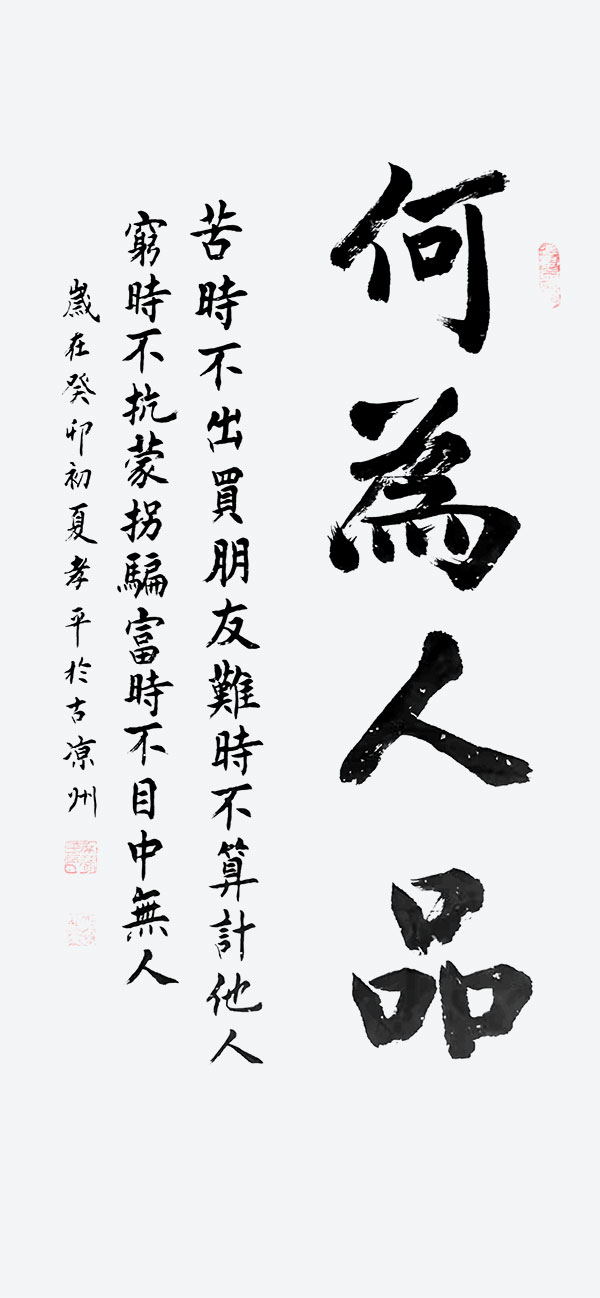 何為人品
苦時不出買朋友難時不算計他人
窮時不抗蒙拐騙富時不目中無人
歲在癸卯初夏孝平於古涼州